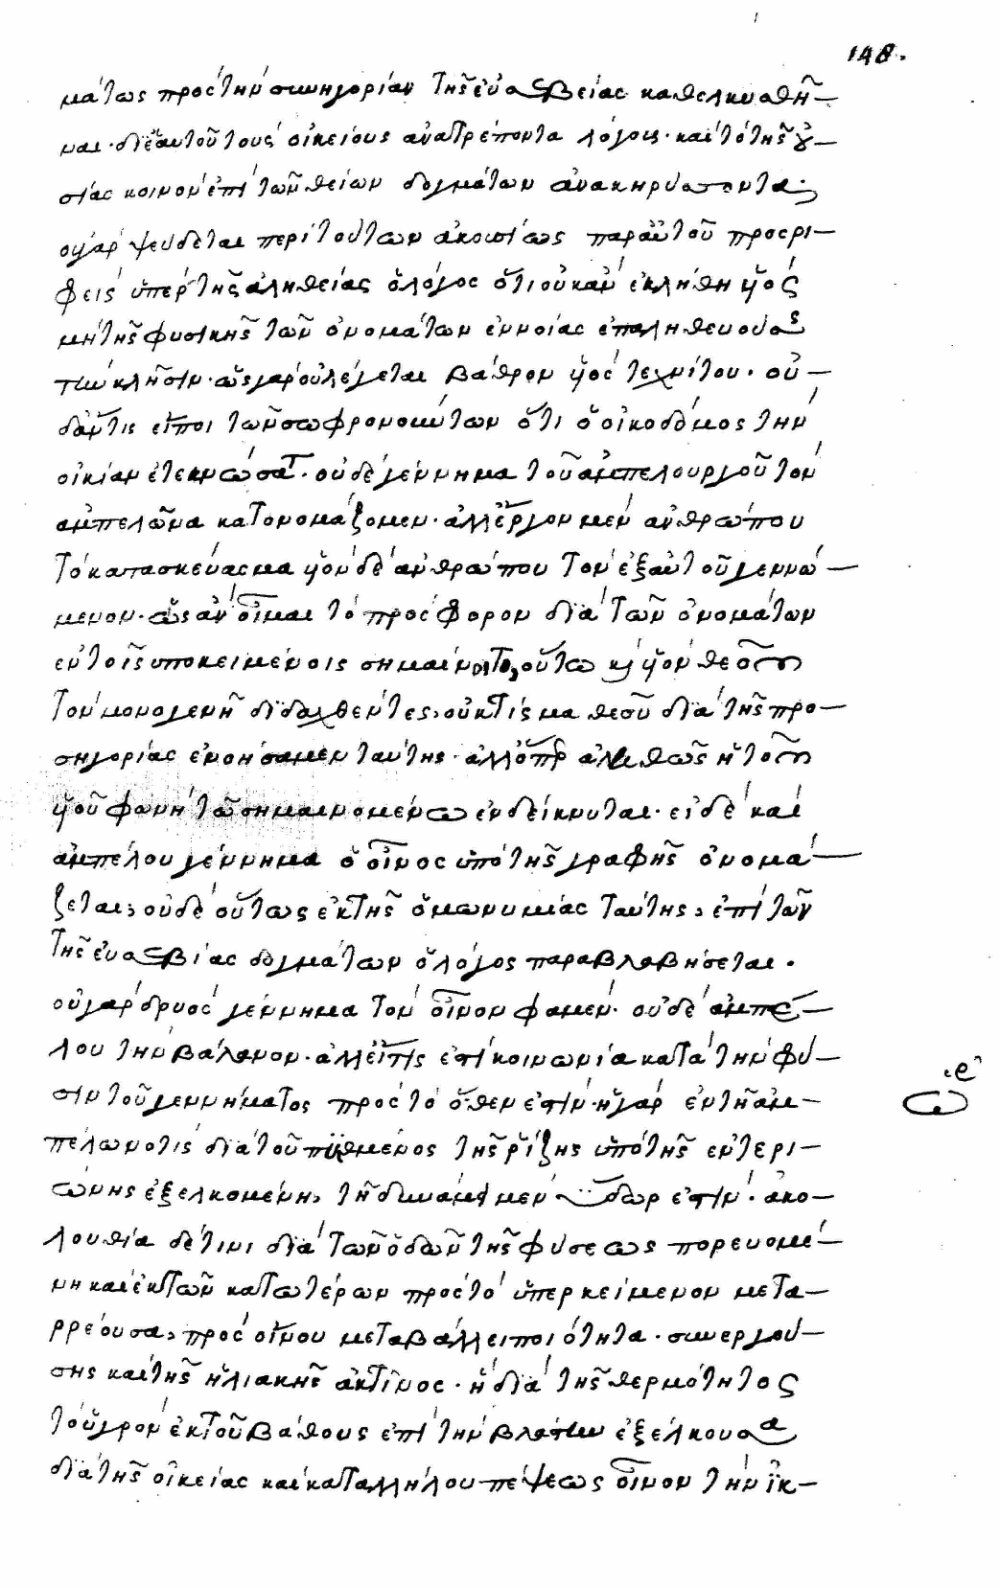 148.
μάτων πρὸς τὴν συνηγορίαν τῆς εὐσεβείας καθελκυσθῆ–
ναι. δι᾽ ἑαυτοῦ τοὺς οἰκείους ἀνατρέποντα λόγους. καὶ τὸ τῆς οὐ–
σίας κοινὸν ἐπὶ τῶν θείων δογμάτων ἀνακηρύσσοντα.
οὐ γὰρ ψεύδεται περὶ τούτων ἀκουσίως παρ᾽ αὐτοῦ προσρι–
φεὶς ὑπὲρ τῆς ἀληθείας ὁ λόγος ὅτι οὐκ ἂν ἐκλήθη υἱὸς
μὴ τῆς φυσικῆς τῶν ὀνομάτων ἐννοίας ἐπαληθευούσης
τὴν κλῆσιν. ὡς γὰρ οὐ λέγεται βάθρον υἱὸς τεχνίτου. οὐ–
δ᾽ ἄν τις εἴποι τῶν σωφρονούντων ὅτι ὁ οἰκοδόμος τὴν
οἰκίαν ἐτεκνώσατο. οὐδὲ γέννημα τοῦ ἀμπελουργοῦ τὸν
ἀμπελῶνα κατονομάζομεν. ἀλλ᾽ ἔργον μὲν ἀνθρώπου
τὸ κατασκεύασμα υἱὸν δὲ ἀνθρώπου τὸν ἐξ αὐτοῦ γεννώ–
μενον. ὡς ἂν οἶμαι τὸ πρόσφορον διὰ τῶν ὀνομάτων
ἐν τοῖς ὑποκειμένοις σημαίνοιτο, οὕτω καὶ υἱὸν θεοῦ
τὸν μονογενῆ διδαχθέντες, οὐ κτίσμα θεοῦ διὰ τῆς προ–
σηγορίας ἐνοήσαμεν ταύτης. ἀλλ᾽ ὅπερ ἀληθῶς ἡ τοῦ
υἱοῦ φωνὴ τῷ σημαινομένῳ ἐνδείκνυται. εἰ δὲ καὶ
ἀμπέλου γέννημα ὁ οἶνος ὑπὸ τῆς γραφῆς ὀνομά–
ζεται, οὐδὲ οὕτως ἐκ τῆς ὁμωνυμίας ταύτης, ἐπὶ τῶν
τῆς εὐσεβίας δογμάτων ὁ λόγος παραβλαβήσεται.
οὐ γὰρ δρυὸς γέννημα τὸν οἶνον φαμὲν. οὐδὲ ἀμπέ–
λου τὴν βάλανον. ἀλλ᾽ εἴ τις ἐστὶ κοινωνία κατὰ τὴν φύ–
σιν τοῦ γεννήματος πρὸς τὸ ὅθεν ἐστίν. ἡ γὰρ ἐν τῇ ἀμ–
πέλῳ νοτὶς διὰ τοῦ πυθμένος τῆς ῥίζης ὑπὸ τῆς ἐντερι–
ώνης ἐξελκομένη, τῇ δυνάμει μὲν ὕδωρ ἐστίν. ἀκο–
λουθία δέ τινι διὰ τῶν ὁδῶν τῆς φύσεως πορευομέ–
νη καὶ ἐκ τῶν κατωτέρων πρὸς τὸ ὑπερκείμενον μετα–
ρρέουσα, πρὸς οἴνου μεταβάλλει ποιότητα. συνεργού–
σης καὶ τῆς ἡλιακῆς ἀκτῖνος. ἡ διὰ τῆς θερμότητος
τὸ ὑγρὸν ἐκ τοῦ βάθους ἐπὶ τὴν βλάστην ἐξέλκουσα
διὰ τῆς οἰκείας καὶ καταλλήλου πέψεως οἶνον τὴν ἰκ–